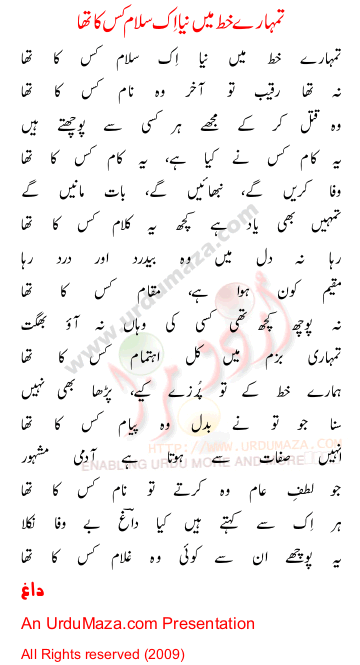 تمہارے خط میں نیا اِک سلام کس کا تھا
تمہارے خط میں نیا اِک سلام کس کا تھا
نہ تھا رقیب تو آخر وہ نام کس کا تھا
وہ قتل کر کے مجھے ہر کسی سے پوچھتے ہیں
یہ کام کس نے کیا ہے، یہ کام کس کا تھا
وفا کریں گے، نبھائیں گے، بات مانیں گے
تمہیں بھی یاد ہے کچھ یہ کلام کس کا تھا
رہا نہ دل میں وہ بیدرد اور درد رہا
مقیم کون ہوا ہے، مقام کس کا تھا
نہ پوچھ کچھ تھی کسی کی وہاں نہ آؤ بھگت
تمہاری بزم میں کل اہتمام کس کا تھا
ہمارے خط کے تو پُرزے کیے، پڑھا بھی نہیں
سنا جو تو نے بدل وہ پیام کس کا تھا
انہیں صفات سے ہوتا ہے آدمی مشہور
جو لطفِ عام وہ کرتے تو نام کس کا تھا
ہر اِک سے کہتے ہیں کیا داغؔ بے وفا نکلا
یہ پوچھے ان سے کوئی وہ غلام کس کا تھا
داغ
www.urdumaza.com
اُردو مزا
HTTP://WWW.URDUMAZA.COM
ENABLING URDU MORE AND MORE
An UrduMaza.com Presentation
All Rights reserved (2009)